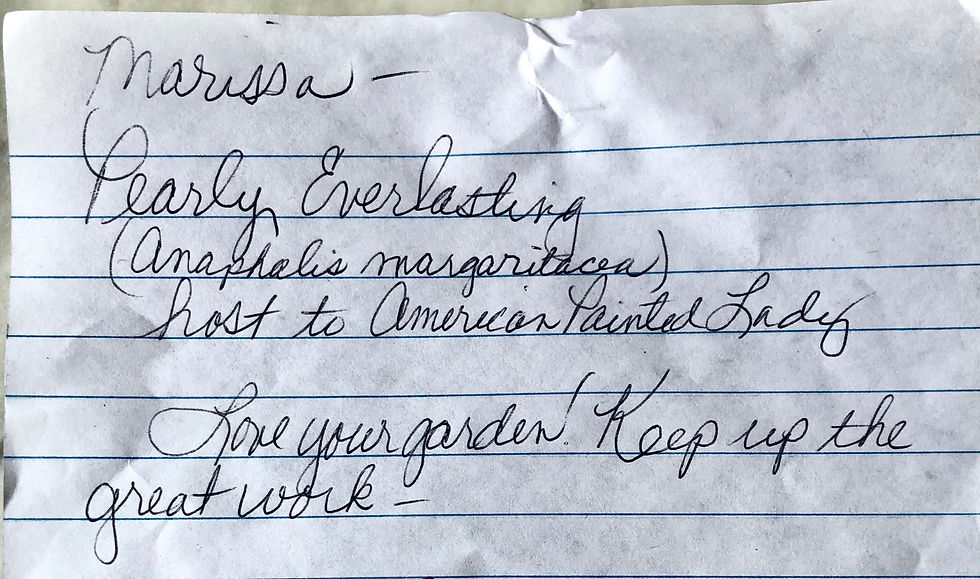 Marissa –
Pearly Everlasting
(Anaphalis margaritacea)
host to American Painted Lady
Love your garden! Keep up the
great work –